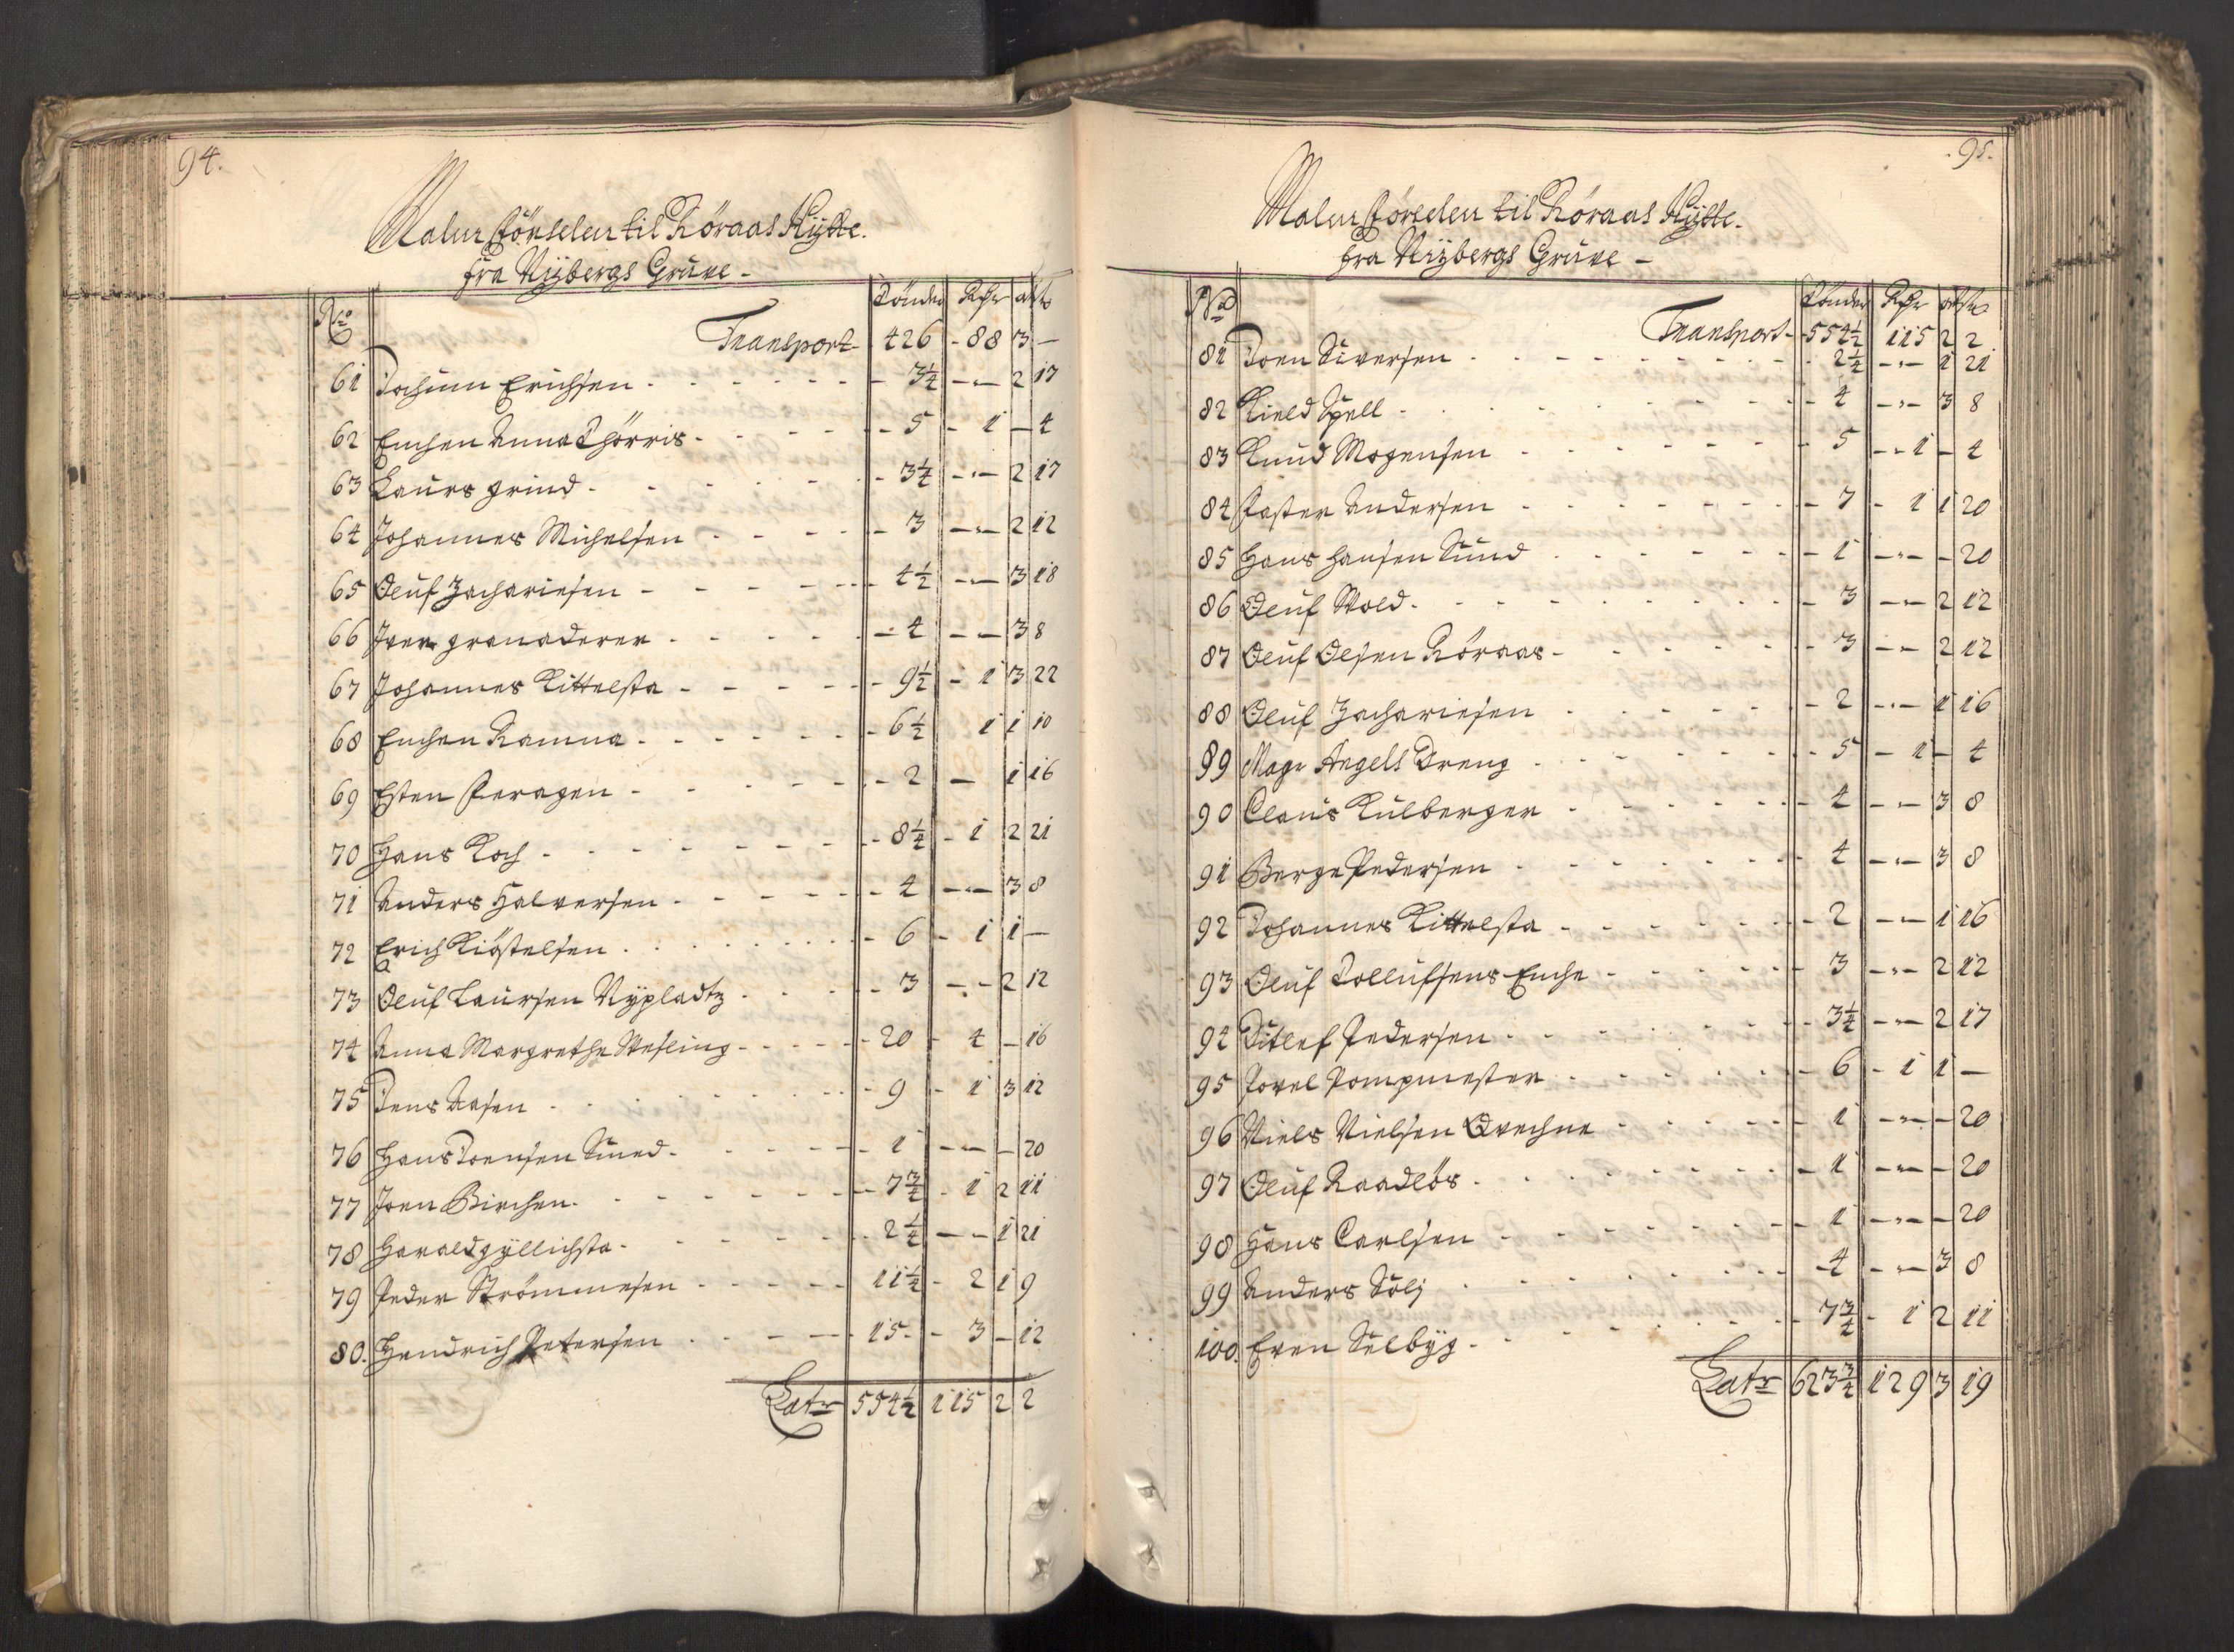 94.
Malm Förselen til Röraas Hÿtte.
fra Nÿbergs Grüve -
No Tönder Rdr ort s
Transport 426 - 88 3 -
61 Jochum Erichsen - 3 1/4 - - 2 17
62 Enchen Anna Thörris - 5 - 1 - 4
63 Laurs grind - 3 1/4 - - 2 17
64 Johannes Michelsen - 3 - - 2 12
65 Oluf Zachariesen - 4 1/2 - - 3 18
66 Iver granaderer - 4 - - 3 8
67 Johannes Kittelsta - 9 1/2 - 1 3 22
68 Enchen Ramna - 6 1/2 1 1 10
69 Esten - 2 - 1 16
70 Hans Koch - 8 1/4 - 1 2 21
71 Anders Halversen - 4 - - 3 8
72 Erich Kiöstelsen - 6 - 1 1 -
73 Oluf Laursen Nÿpladtz - 3 - - 2 12
74 Anna Margrethe Wesling - 20 - 4 - 16
75 Jens Aasen - 9 - 1 3 12
76 Hans Joensen Smed - 1 - - - 20
77 Joen Birchen - 7 3/4 - 1 2 11
78 Harald gÿllichsta - 2 1/4 - - 1 21
79 Peder Strömmesen - 11 1/4 - 2 1 9
80. Hendrich Petersen - 15 - 3 - 12
Latr 554 1/2 115 2 2
95.
Malm Förselen til Röraas Hÿtte.
fra Nÿbergs Grüve -
No Tönder Rdr ort s
Transport - 554 1/2 115 2 2
81 Joen Siversen - 2 1/4 - - 1 21
82 Kield Spell - 4 - - 3 8
83 Knud Mogensen - 5 - 1 - 4
84 Paster Andersen - 7 - 1 1 20
85 Hans Hansen Sund - 1 - - - 20
86 Oluf Wold - 3 - - 2 12
87 Oluf Olsen Röraas - 3 - - 2 12
88 Oluf Zachariesen - 2 - - 1 16
89 Magr Angels Dreng - 5 - 1 - 4
90 Claus Kulberger - 4 - - 3 8
91 Berge Pedersen - 4 - - 3 8
92 Johannes Kittelsta - 2 - - 1 16
93 Oluf Tollufsens Enche - 3 - - 2 12
94 Ditlef Pedersen - 3 1/4 - - 2 17
95 Povel Pompmester - 6 - 1 1 -
96 Niels Nielsen Qvechne - 1 - - - 20
97 Oluf Raadlös - 1 - - - 20
98 Hans Carlsen - 1 - - - 20
99 Anders Sölj - 4 - - 3 8
100. Even Selbÿg - 7 3/4 - 1 2 11
Latr 623 3/4 129 3 19